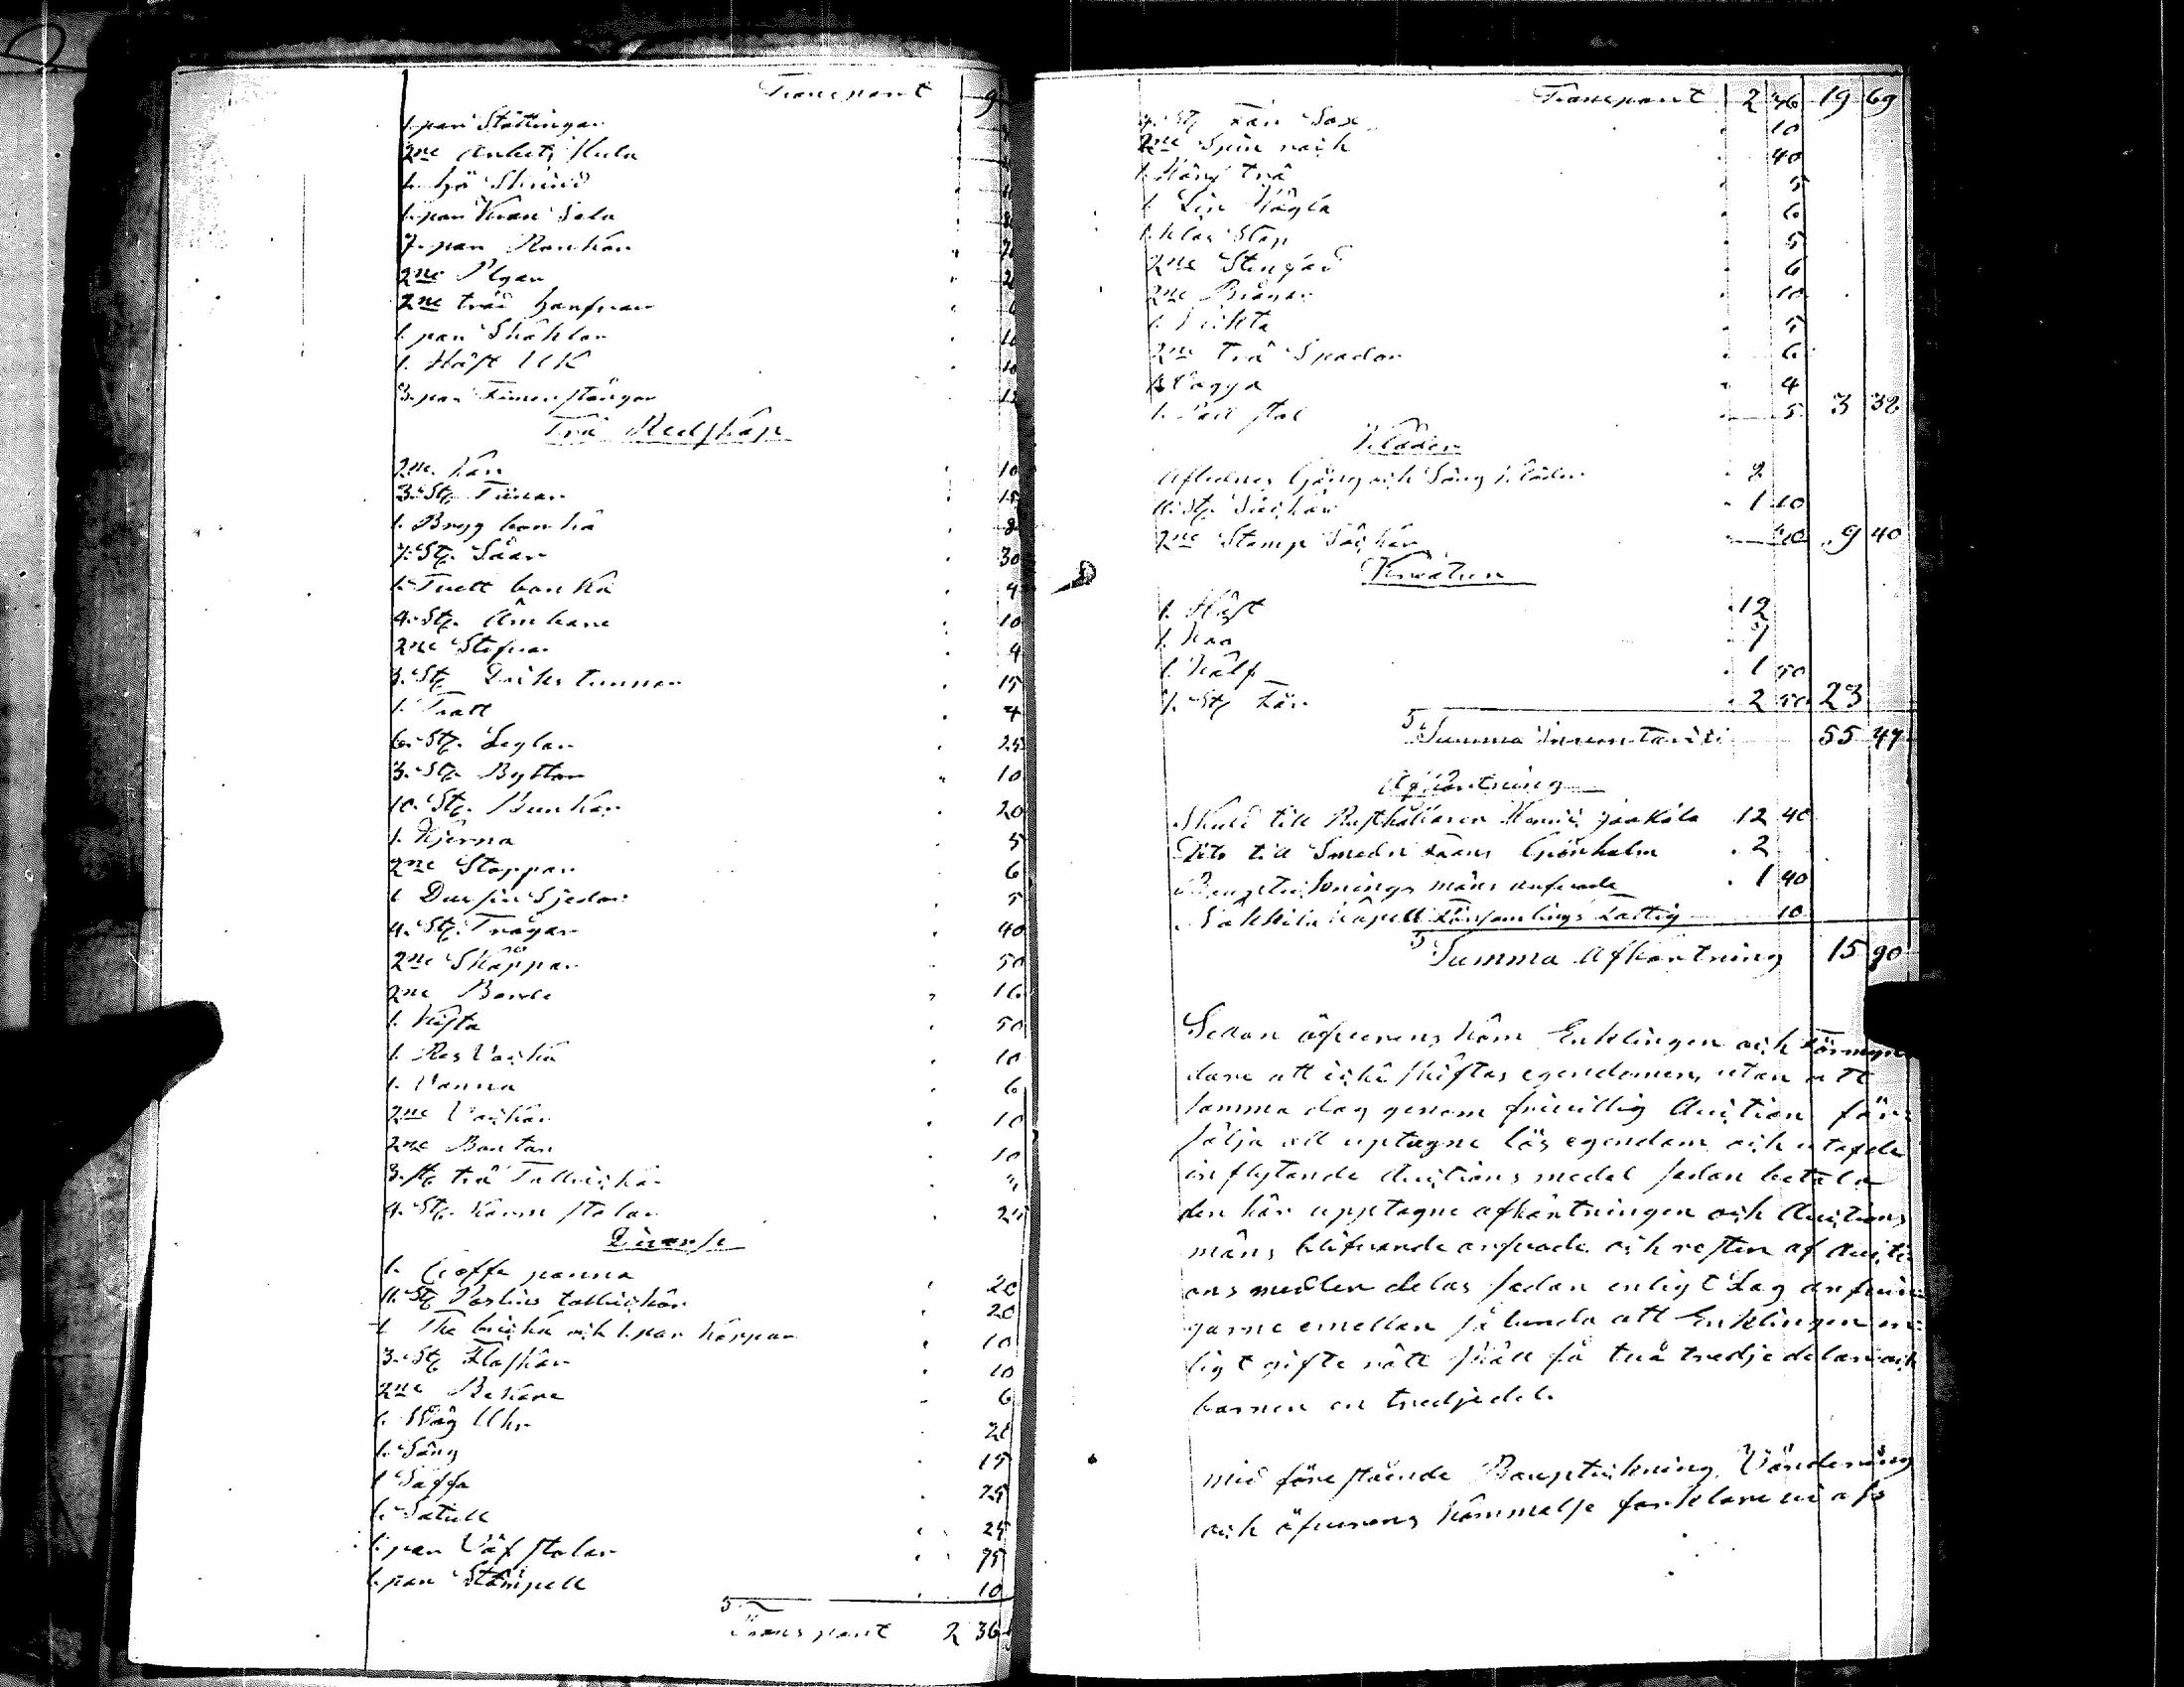 Transport 9
1. par Stöttingar
2ne Arbets Kula
1. hö Skrind
1. par Kran Sela
7. par Rankor 2
2ne Plgar 2
2ne träd harfvar 6
1. par Skaklar 10
1. Häst Uk 10
3. par Timmer stänger 15
Trä Redskap
2ne Kar 10
3. St. Tinar 15
1. Brygg banka 8
7. St. Såar 30
1. Tvett banka 4
4. St. Ämbare 10
2ne Stäfvor 4
3. St. Dricks tunnor 15
1. Tratt 4
6. St. Leglar 25
3. St. Byttor 10
10. St. Bunkar 20
1. Kjerna 5
2ne Stoppar 6
1 Dussin Skedar 5
4. St. Trågar 40
2ne Skåppar 50
2ne Borde 16
1. Kista 50
1. Res Vaska 10
1. Vanna 6
2ne Vackar 10
2ne Bantar 10
3. st. trä Tallrickar 4
4. St. Karm stolar 25
Diverse
1. Coffe panna 20
11. St Poslins tallrickar 20
1 The bricka och 1. par Koppar 10
3. St. Flaskor 10
2ne Bekare 6
1. Väg Uhr 20
1. Säng 15
1 Saffa 25
1. Satull 25
1. par Väf stolar 75
1. par Stämpell 10
Transport 2 36
Transport 2 36 19 69
4. St Får Sax 10
2ne Spin råck 40
1. Häng trä 5
1. Lin Hägla 6
1. klas Stop 5
2ne Stenfad 6
2ne Brånar 10
1. Lickta 5
2ne trä Spadar 6
1. Vagga 4
1. Pall stol 5 3 32
Kläder
Aflednes Gång och Säng kläder 2
11. St. Säckar 1 10
2ne Stamp Säckar 40 9 40
Kreatur
1. Häst 12
1. Koo 7
1. Kalf 1 50
7. St. Får 2 50 23
Summa Inventarii 55 47
Afkortning
Skuld till Rusthållaren Henric Jaakola 12 40
Dito till Smeden Frans Grönholm 2
Bouptecknings mäns arfvode 1 40
Säkkilä Kapell Församlings Fattig 10
Summa Afkortning 15 90
Sedan öfverens kom Enklingen och Förmyn
dare att icke skiftas egendomen, utan att
samma dag genom frivillig Auction för
sälja all uptagne lös egendom och utaf de
inflytande Auctions medel sedan betala
den här upptagne afkortningen och Auctions
mäns blifvande arfvode och resten af Aucti
ons medlen delas sedan enligt Lag arfvin
garne emellan så lunda att Enklingen en
ligt gifte rätt skall få två tredjedelar och
barnen en tredjedel.
med föreståände Bouptäckning, Värdering
och öfverens kommelse förklare vi oss